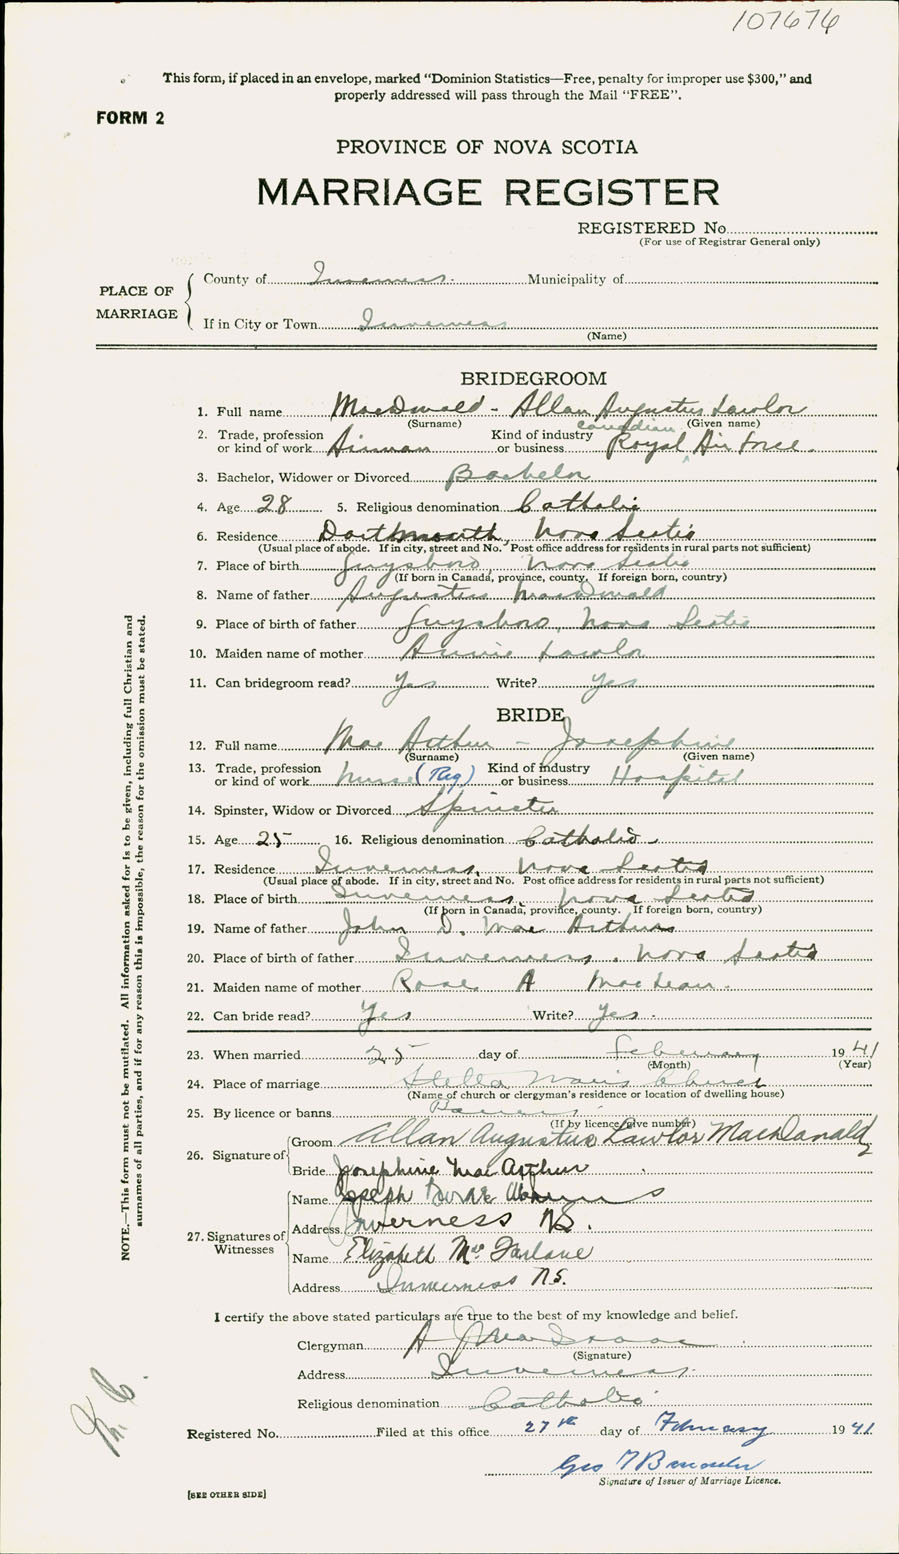 107676
This form, if placed in an envelope, marked “Dominion Statistics—Free, penalty for improper use $300,” and
properly addressed will pass through the Mail “FREE”.
FORM 2
PROVINCE OF NOVA SCOTIA
MARRIAGE REGISTER
REGISTERED No
(For use of Registrar General only)
PLACE OF MARRIAGE
County of Inverness. Municipality of
If in City or Town Inverness
(Name)
BRIDEGROOM
1. Full name MacDonald - Allan Augustus Lawlor
(Surname) (Given name)
2. Trade, profession or kind of work Airman Kind of industry or business Royal Canadian Air Force.
3. Bachelor, Widower or Divorced Bachelor
4. Age 28 5. Religious denomination Catholic
6. Residence Dartmouth, Nova Scotia
(Usual place of abode. If in city, street and No. Post office address for residents in rural parts not sufficient)
7. Place of birth Guysboro, Nova Scotia
(If born in Canada, province, county. If foreign born, country)
8. Name of father Augustus MacDonald
9. Place of birth of father Guysboro, Nova Scotia
10. Maiden name of mother Annie Lawlor
11. Can bridegroom read? Yes Write? Yes
BRIDE
12. Full name Mac Arthur - Josephine
(Surname) (Given name)
13. Trade, profession or kind of work Nurse (Reg) Kind of industry or business Hospital
14. Spinster, Widow or Divorced Spinster
15. Age 25 16. Religious denomination Catholic.
17. Residence Inverness, Nova Scotia
(Usual place of abode. If in city, street and No. Post office address for residents in rural parts not sufficient)
18. Place of birth Inverness, Nova Scotia
(If born in Canada, province, county. If foreign born, country)
19. Name of father John D. Mac Arthur
20. Place of birth of father Inverness, Nova Scotia
21. Maiden name of mother Rose A MacLean.
22. Can bride read? Yes Write? Yes.
23. When married 25 day of February 1941
(Month) (Year)
24. Place of marriage Stella Maris Church
(Name of church or clergyman's residence or location of dwelling house)
25. By licence or banns Banns
(If by licence give number)
26. Signature of
Groom Allan Augustus Lawlor MacDonald
Bride Josephine MacArthur
27. Signatures of Witnesses
Name Joseph
Address Inverness NS.
Name Elizabeth Mac Farlane
Address Inverness N.S.
I certify the above stated particulars are true to the best of my knowledge and belief.
Clergyman A J MacIsaac
(Signature)
Address Inverness.
Religious denomination Catholic
Registered No. Filed at this office 27th day of February 1941
Geo
Signature of Issuer of Marriage Licence.
[SEE OTHER SIDE]
NOTE.—This form must not be mutilated. All information asked for is to be given, including full Christian and
surnames of all parties, and if for any reason this is impossible, the reason for the omission must be stated.